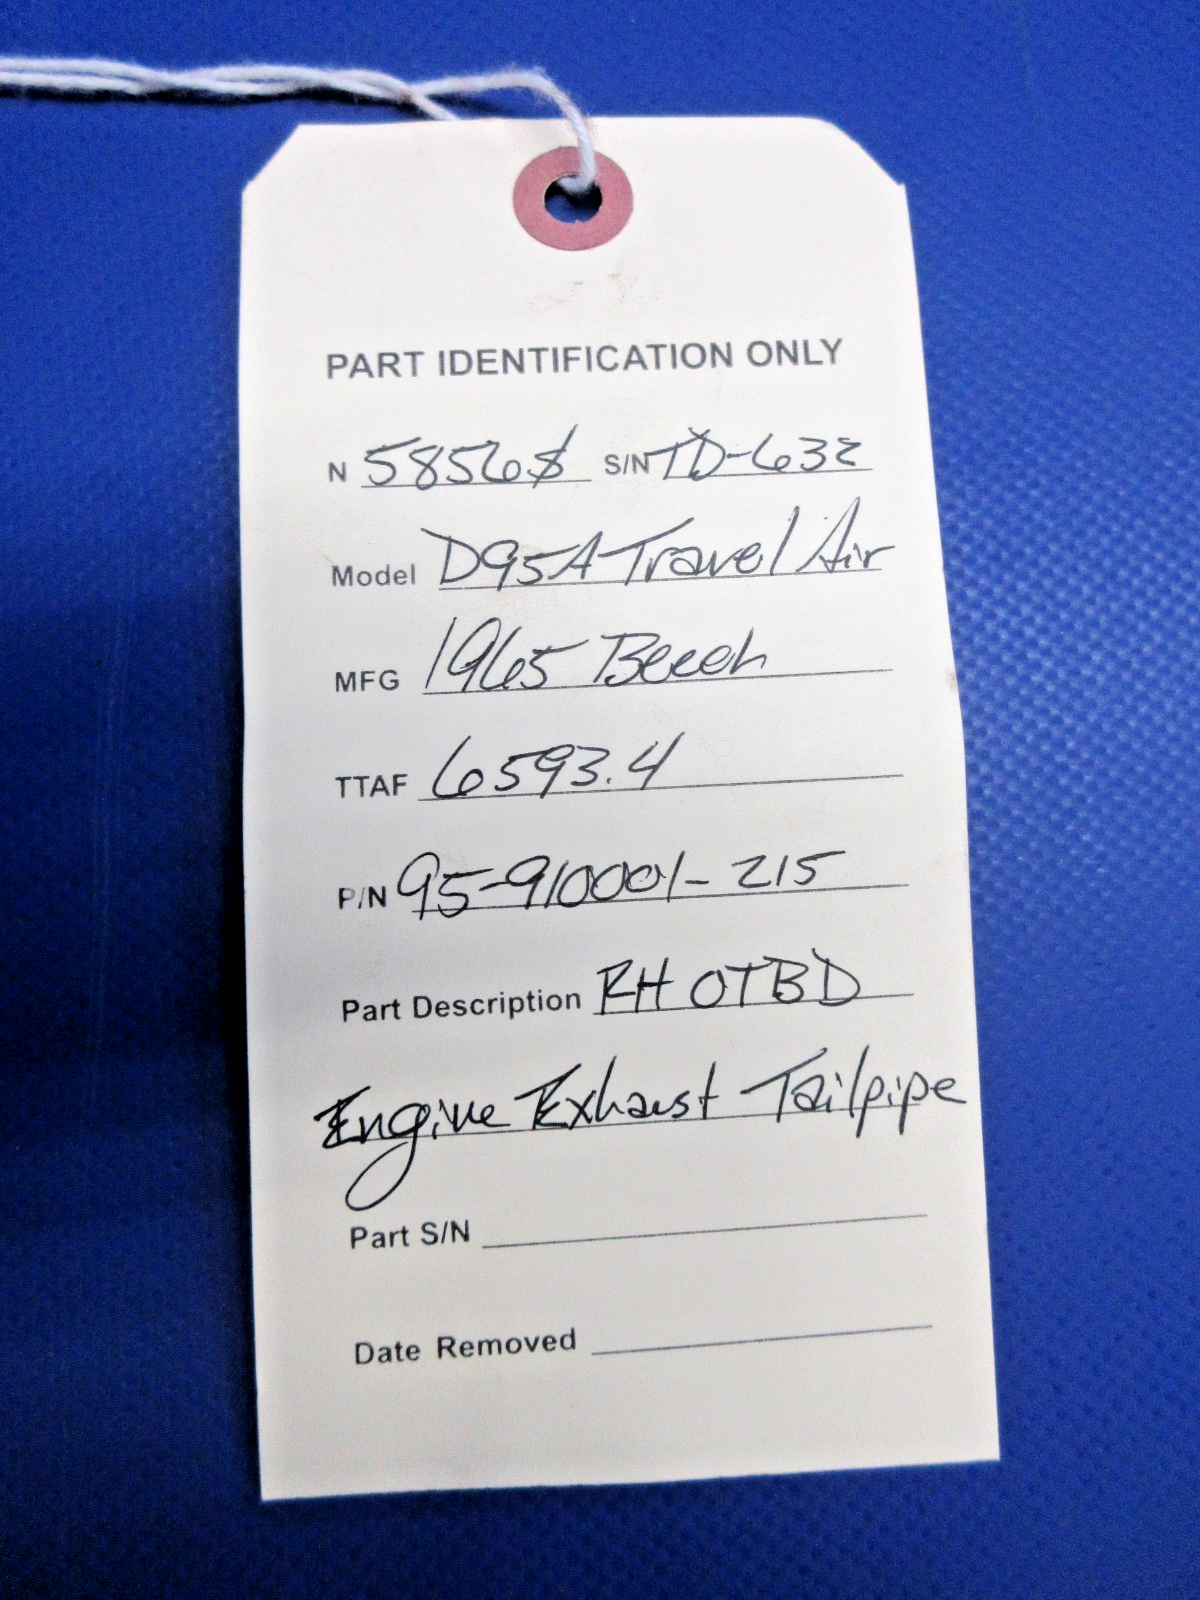 PART IDENTIFICATION ONLY
N 5856S S/N TD-632
Model D95A Travel Air
MFG 1965 Beech
TTAF 6593.4
P/N 95-910001-215
Part Description RH OTBD
Engine Exhaust Tailpipe
Part S/N
Date Removed